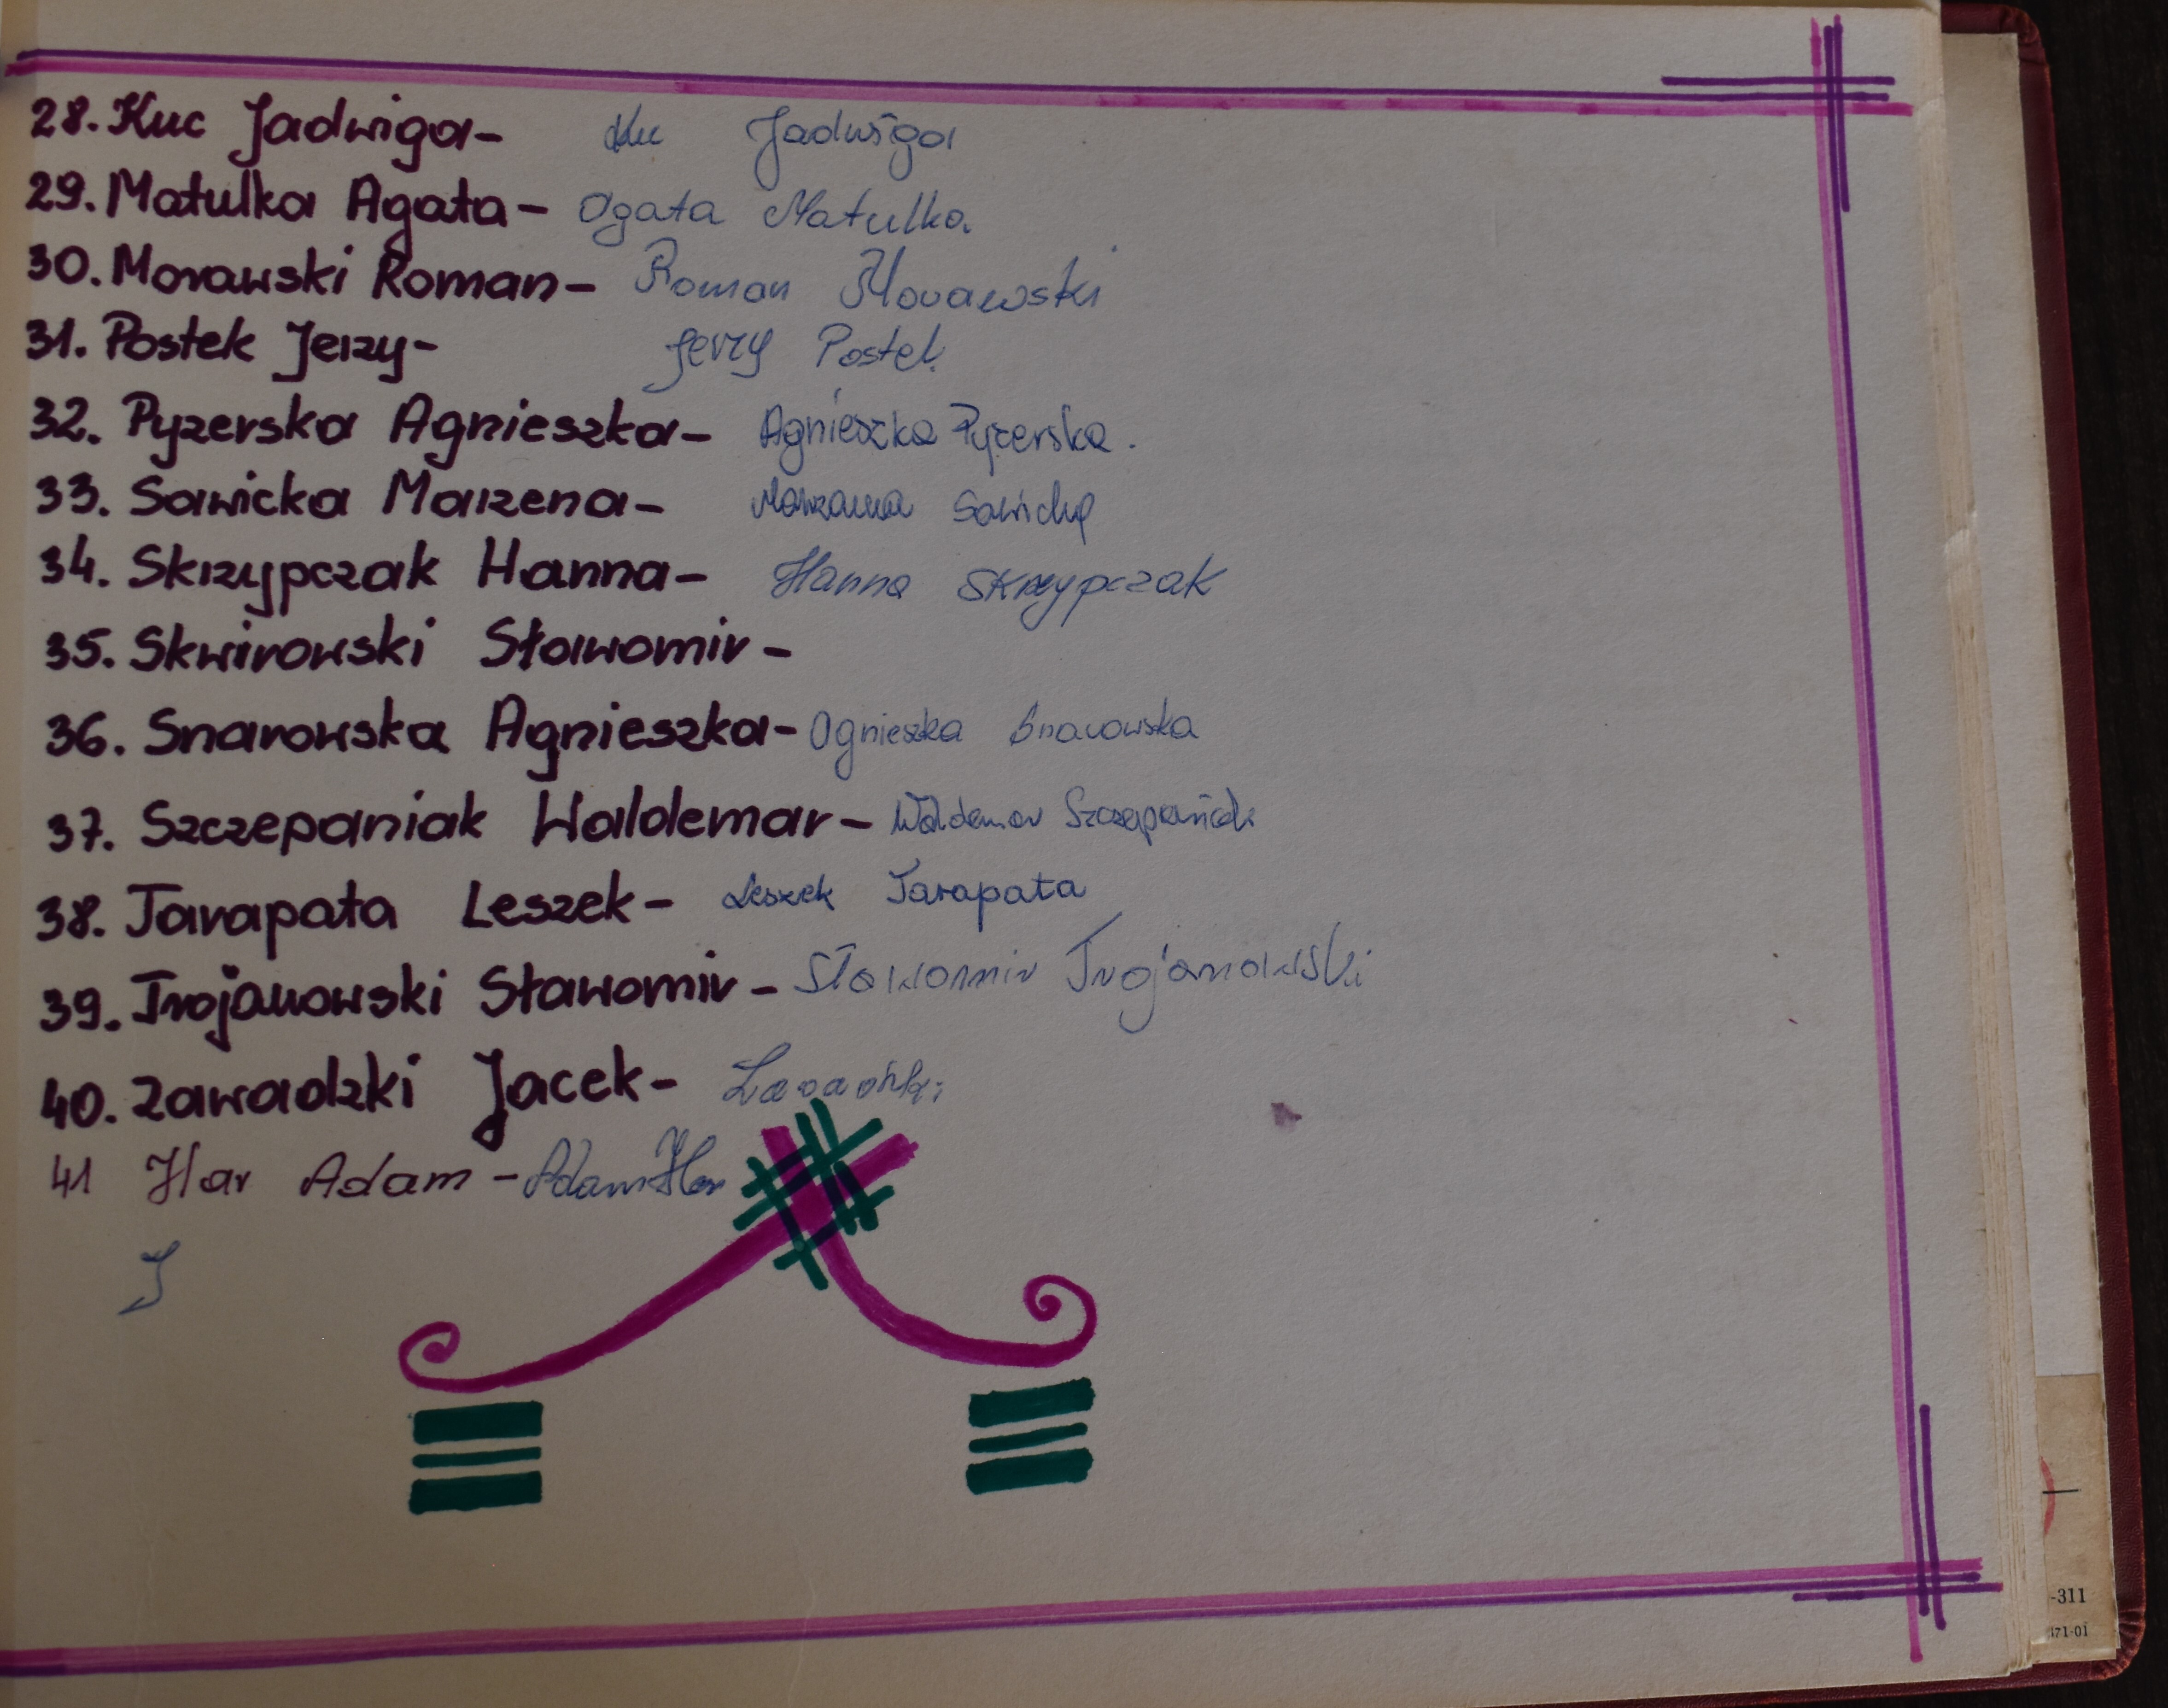 28. Kuc Jadwiga- Kuc Jadwiga
29. Matulka Agata- Agata Matulka
30. Morawski Roman- Roman Morawski
31. Postek Jerzy- Jerzy Postek
32. Pyzerska Agnieszka- Agnieszka Pyzerska.
33. Sawicka Marzena- Marzena Sawicka
34. Skrzypczak Hanna- Hanna Skrzypczak
35. Skwirowski Sławomir-
36. Snarowska Agnieszka- Agnieszka Snarowska
37. Szczepaniak Waldemar- Waldemar Szczepaniak
38. Tarapata Leszek- Leszek Tarapata
39. Trojanowski Sławomir- Sławomir Trojanowski
40. Zawadzki Jacek- Zawadzki
41 Har Adam - Adam Har
J
-311
471-01